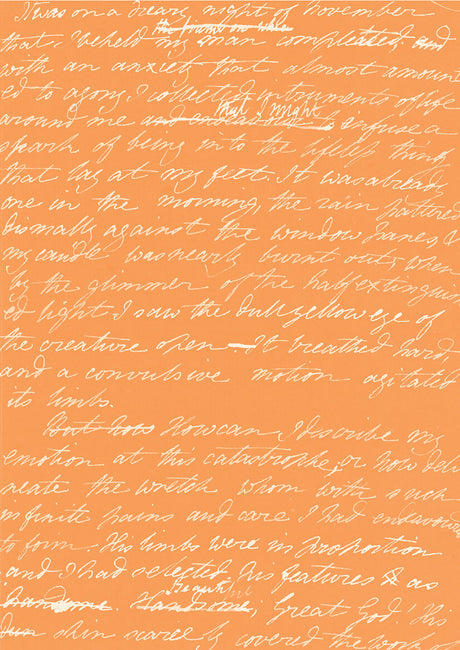 It was on a dreary night of November
the frame on whic
that I beheld my man compleated. and
with an anxiety that almost amount
ed to agony I collected instruments of life
that I might
around me and endeavoured to infuse a
spark of being into the lifeless thing
that lay at my feet. It was already
one in the morning, the rain pattered
dismally against the window panes, &
my candle was nearly burnt out, when
by the glimmer of the half extinguish
ed light I saw the dull yellow eye of
the creature open - It breathed hard
and a convulsive motion agitated
its limbs.
But how How can I describe my
emotion at this catastrophe, or how deli
neate the wretch whom with such
infinite pains and care I had endeavour
to form. His limbs were in proportion
and I had selected his features & as
Beautiful
handsome. Handsome, Great God! His
dun skin scarcely covered the work of